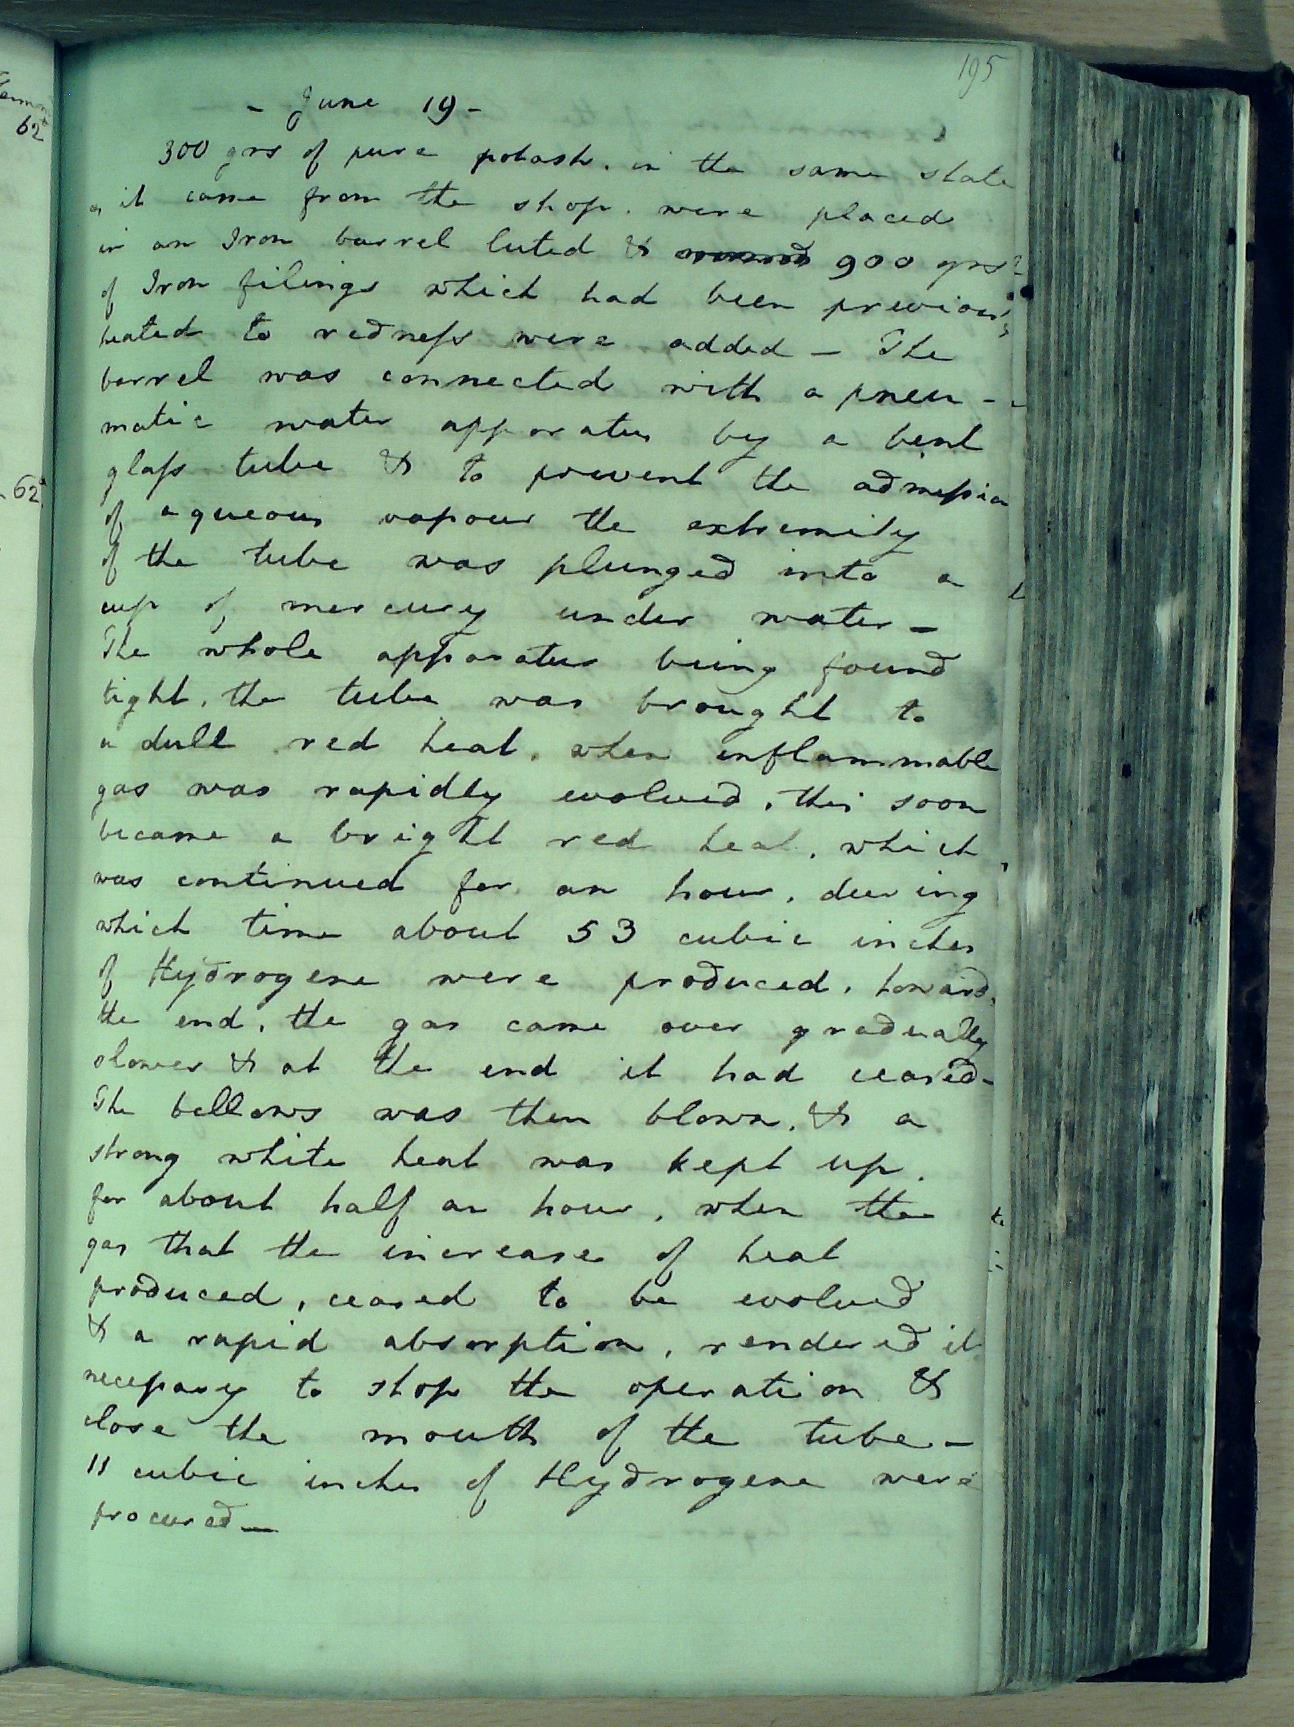 195
- June 19 -
300 grs of pure potash. in the same state
as it came from the shop. were placed
in an Iron barrel luted & 900 grs
of Iron filings which had been previous
heated to redness were added - The
barrel was connected with a pneu -
matic water apparatus by a bent
glass tube & to prevent the admission
of aqueous vapour the extremity
of the tube was plunged into a
cup of mercury under water -
The whole apparatus being found
tight, the tube was brought to
a dull red heat, when inflammable
gas was rapidly evolved, this soon
became a bright red heat, which
was continued for an hour, during
which time about 53 cubic inches
of Hydrogene were produced, towards
the end, the gas came over gradually
slower & at the end it had ceased -
The bellows was then blown, & a
strong white heat was kept up.
for about half an hour, when the
gas that the increase of heat
produced, ceased to be evolved
& a rapid absorption, rendered it
necessary to stop the operation &
close the mouth of the tube -
11 cubic inches of Hydrogene were
procured -
62
62